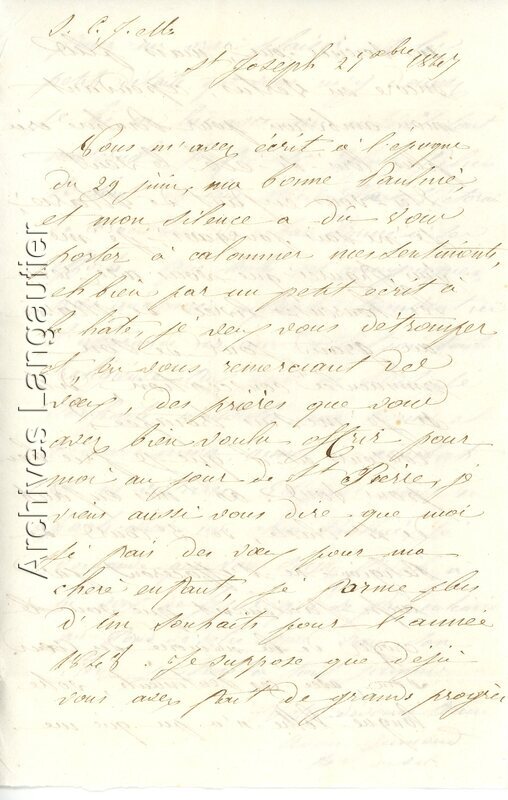 S. C. J. M.
St Joseph 29 xbre 1847
Vous m'avez écrit à l'époque
du 29 juin, ma bonne Pauline,
et mon silence a dû vous
porter à calomnier mes sentiments,
eh bien par un petit écrit à
la hâte, je veux vous détromper
et, en vous remerciant des
vœux, des prières que vous
avez bien voulu offrir pour
moi au jour de St Pierre, je
viens aussi vous dire que moi
je fais des vœux pour ma
chère enfant, je forme plus
d'un souhaits pour l'année
1848. Je suppose que déjà
vous avez fait de grands progrès
Archives Langautier